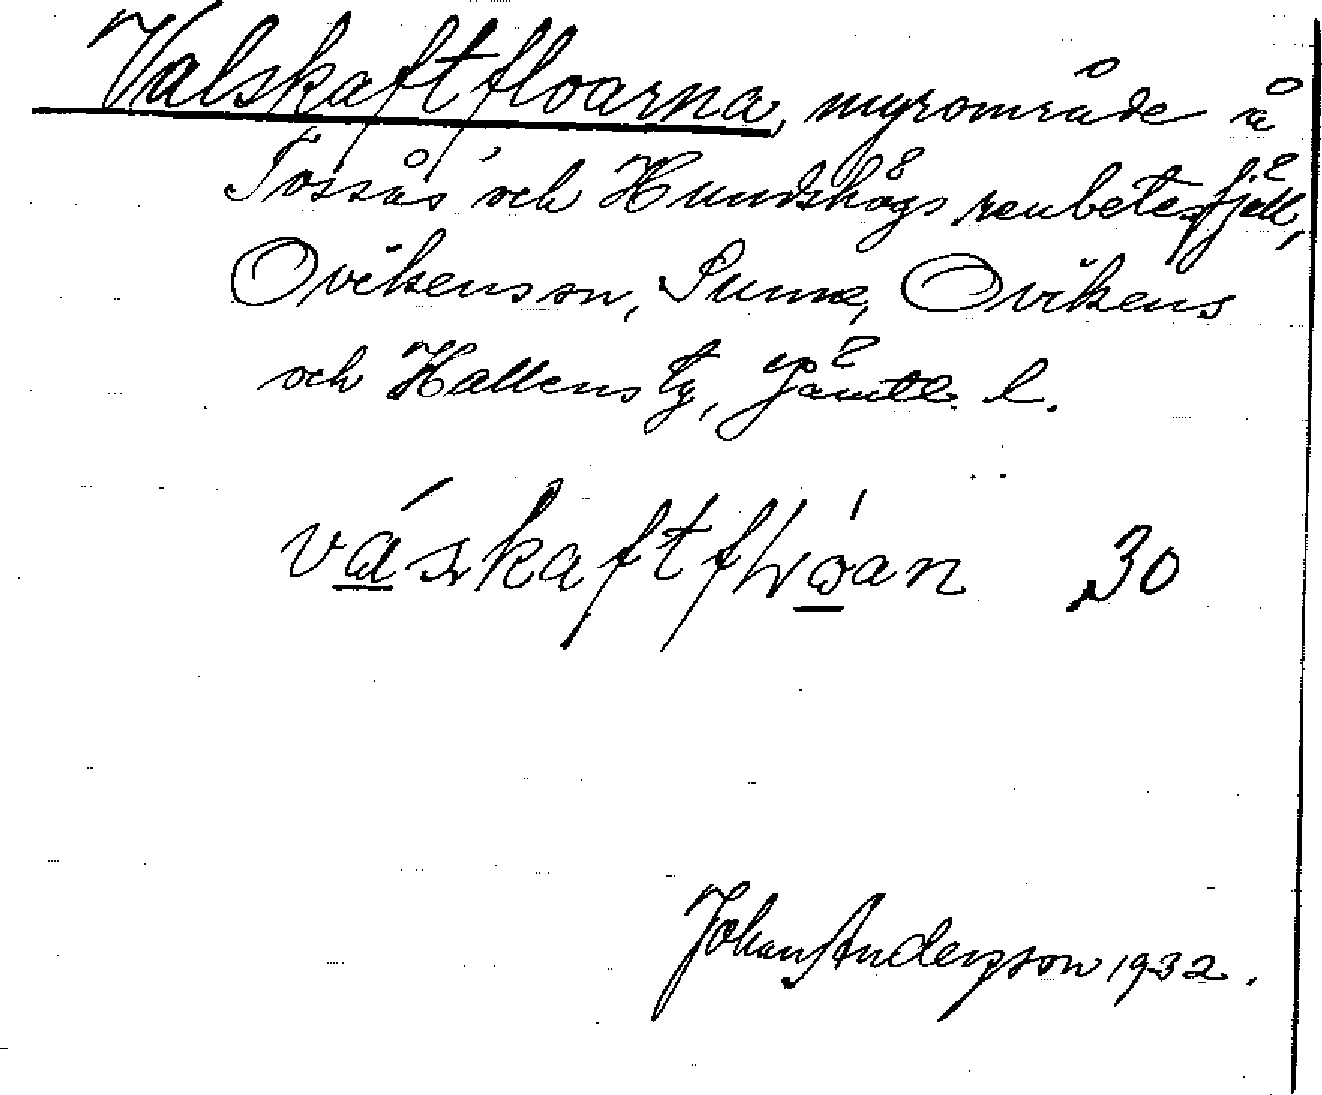 Valskaftfloarna, myrområde å
Tossås och Hundshögs renbetesfjäll,
Ovikens sn, Sunne, Ovikens
och Hallens tg, Jämtl. l.
30
Johan Anderson 1932.